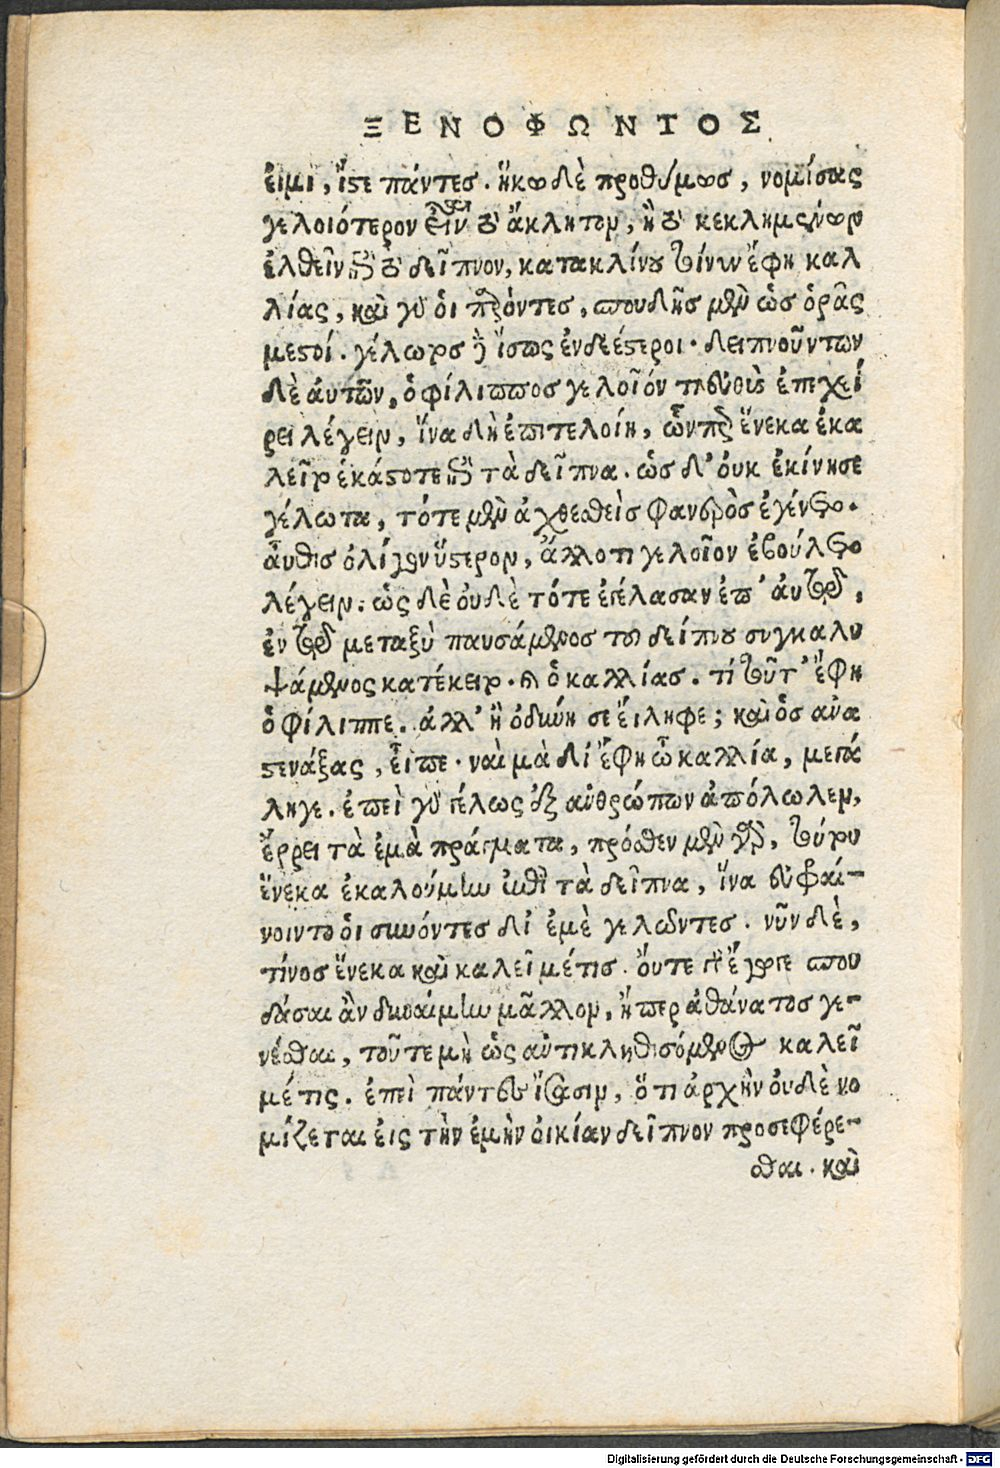 ΞΕΝΟΦΩΝΤΟΣ
εἰμὶ, ἴστε πάντες. ἥκω δὲ προθύμως, νομίσας
γελοιότερον εἶναι τὸ ἄκλητον, ἢ τὸ κεκλημένον
ἐλθεῖν ἐπὶ τὸ δεῖπνον, κατακλίνου τοίνυν ἔφη καλ
λίας, καὶ γὰρ ὁι παρόντες, σπουδῆς μὲν ὡς ὁρᾷς
μεστοί. γέλωτος δὲ ἴσως ἐνδεέστεροι. δειπνούντων
δὲ ἀυτῶν, ὁ φίλιππος γελοῖόν τι εὐθὺς ἐπεχεί
ρει λέγειν, ἵνα δὴ ἐπιτελοίη, ὧνπερ ἕνεκα ἐκα
λεῖτο ἑκάστοτε ἐπὶ τὰ δεῖπνα. ὡς δ' ὀυκ ἐκίνησε
γέλωτα, τότε μὲν ἀχθεσθεὶς φανερὸς ἐγένετο.
ἆυθις ὀλίγον ὕστερον, ἄλλο τι γελοῖον ἐβούλετο
λέγειν. ὡς δὲ ὀυδὲ τότε ἐγέλασαν ἐπ' ἀυτῷ,
ἐν τῷ μεταξὺ παυσάμενος τοῦ δείπνου συγκαλυ
ψάμενος κατέκειτο. καὶ ὁ καλλίας. τί τοῦτ' ἔφη
ὁ φίλιππε. ἀλλ' ἢ ὀδύνη σε ἔιληφε; καὶ ὃς ἀνα
στενάξας, εἶπε. ναὶ μὰ δί ἔφη ὦ καλλία, μεγά
λη γε. ἐπεὶ γὰρ γέλως ἐξ ἀνθρώπων ἀπόλωλεν,
ἔρρει τὰ ἐμὰ πράγματα, πρόσθεν μὲν γὰρ, τούτου
ἕνεκα ἐκαλούμην ἐπὶ τὰ δεῖπνα, ἵνα εὐφραί-
νοιντο ὁι συνόντες δι ἐμὲ γελῶντες. νῦν δὲ,
τίνος ἕνεκα καὶ καλεῖ μέ τις. ὄυτε γὰρ ἔγωγε σπου
δάσαι ἂν δυναίμην μᾶλλον, ἤπερ ἀθάνατος γε-
νέσθαι, ὄυτε μὴ ὡς ἀντικληθησόμενος καλεῖ
μέ τις. ἐπεὶ πάντες ἴσασιν, ὅτι ἀρχὴν ὀυδὲ νο
μίζεται ἐις τὴν ἐμὴν ὀικίαν δεῖπνον προσεφέρε-
σθαι. καὶ
Digitalisierung gefördert durch die Deutsche Forschungsgemeinschaft - DFG